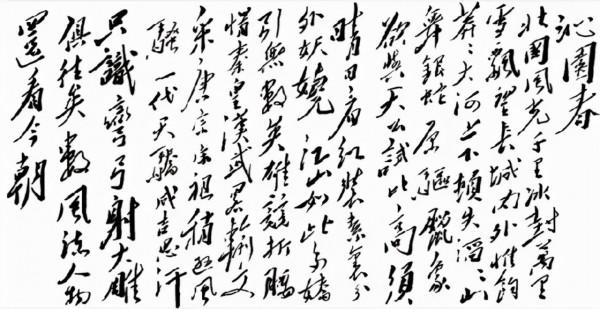 沁園春
北國風光千里冰封萬里
雪飄望長城内外惟餘
莽々大河上下頓失滔々山
舞銀蛇原驅臘象
欲與天公試比高須
晴日看紅裝素裹分
外妖嬈江山如此多嬌
引無數英雄競折腰
惜秦皇漢武畧輸文
采唐宗宋祖稍遜風
騷一代天驕成吉思汗
只識彎弓射大雕
俱往矣數風流人物
還看今朝